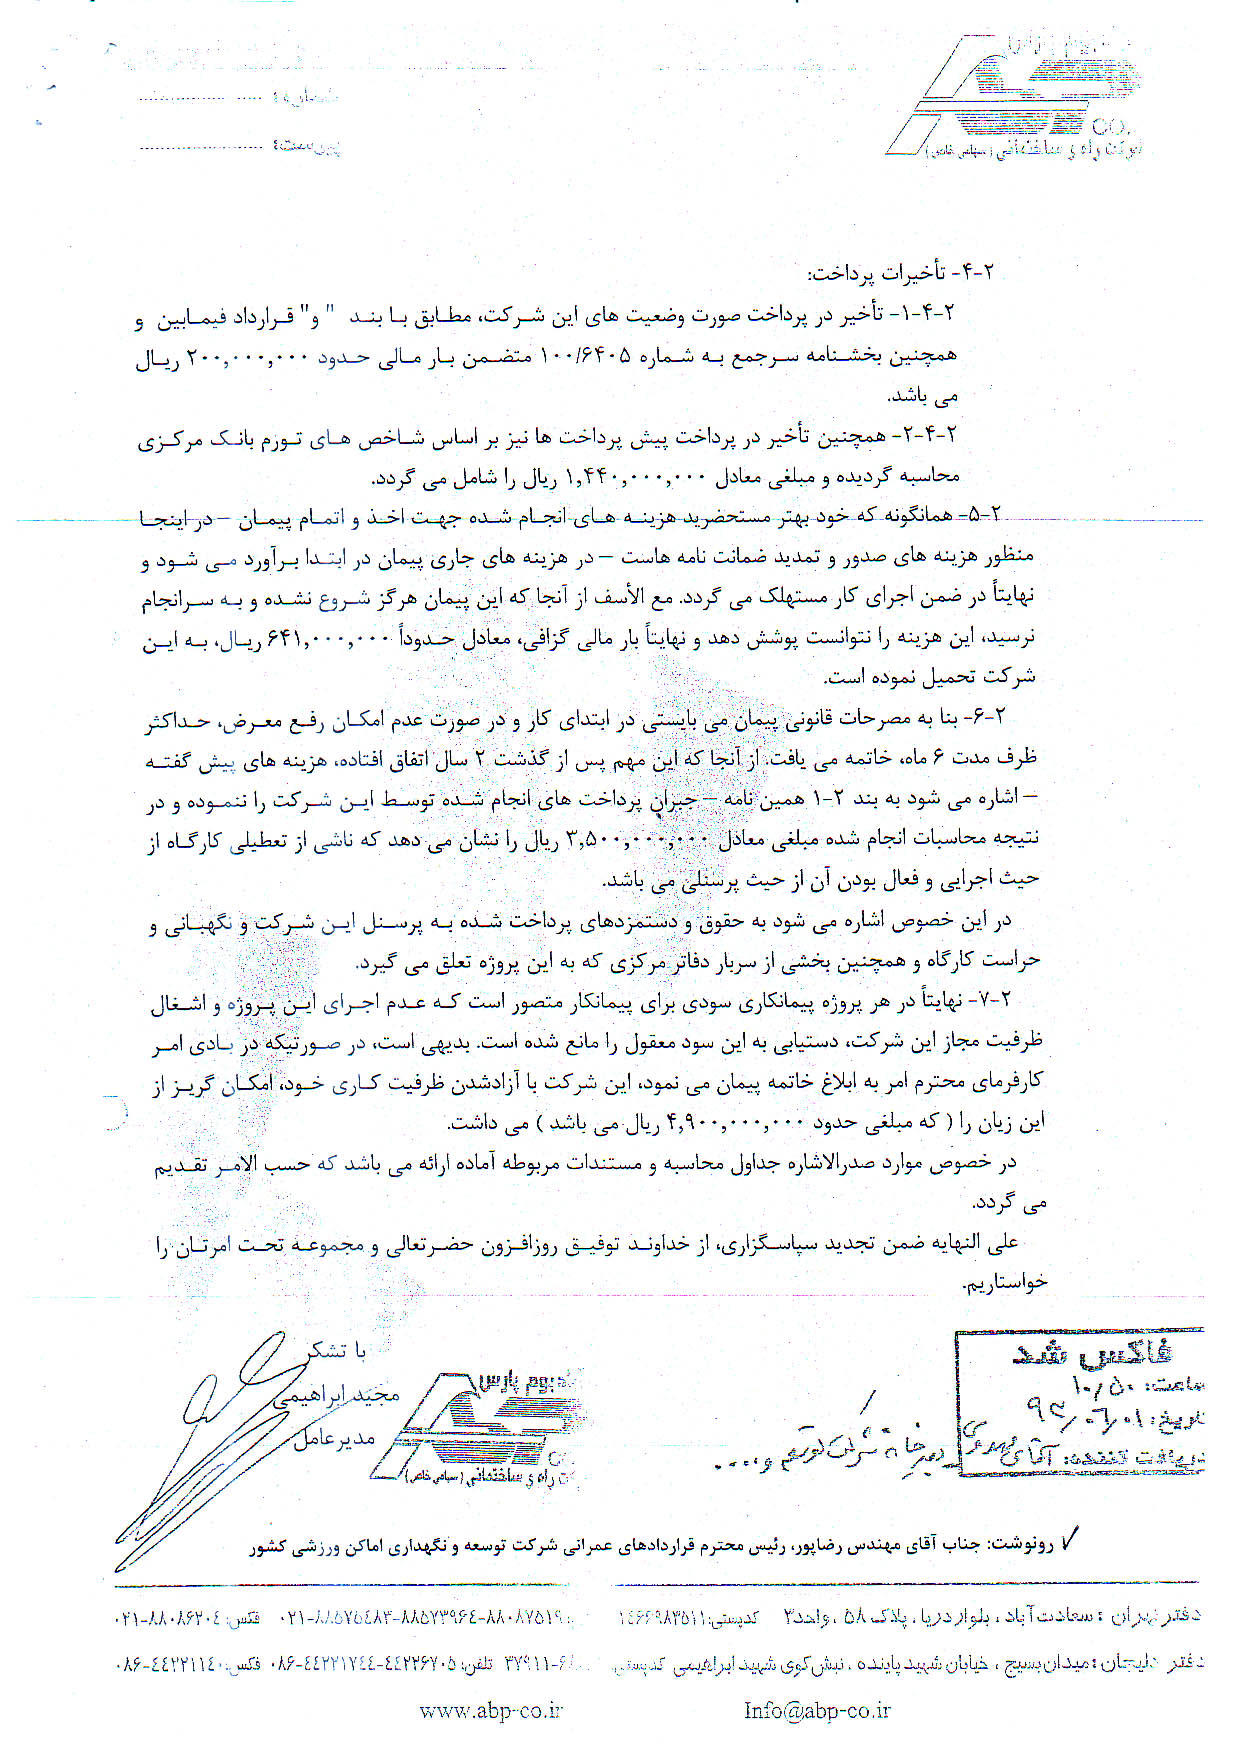 CO.
راه و ساختمانی (سهامی خاص)
۲-۴- تأخیرات پرداخت:
۲-۴-۱- تأخیر در پرداخت صورت وضعیت های این شرکت، مطابق با بند "و" قرارداد فیمابین و
همچنین بخشنامه سرجمع به شماره ۱۰۰/۶۴۰۵ متضمن بار مالی حدود ۲۰۰,۰۰۰,۰۰۰ ریال
می باشد.
۲-۴-۲- همچنین تأخیر در پرداخت پیش پرداخت ها نیز بر اساس شاخص های تورم بانک مرکزی
محاسبه گردیده و مبلغی معادل ۱,۴۴۰,۰۰۰,۰۰۰ ریال را شامل می گردد.
۲-۵- همانگونه که خود بهتر مستحضرید هزینه های انجام شده جهت اخذ و اتمام پیمان – در اینجا
منظور هزینه های صدور و تمدید ضمانت نامه هاست – در هزینه های جاری پیمان در ابتدا برآورد می شود و
نهایتاً در ضمن اجرای کار مستهلک می گردد. مع الأسف از آنجا که این پیمان هرگز شروع نشده و به سرانجام
نرسید، این هزینه را نتوانست پوشش دهد و نهایتاً بار مالی گزافی، معادل حدوداً ۶۴۱,۰۰۰,۰۰۰ ریال، به این
شرکت تحمیل نموده است.
۲-۶- بنا به مصرحات قانونی پیمان می بایستی در ابتدای کار و در صورت عدم امکان رفع معرض، حداکثر
ظرف مدت ۶ ماه، خاتمه می یافت. از آنجا که این مهم پس از گذشت ۲ سال اتفاق افتاده، هزینه های پیش گفته
– اشاره می شود به بند ۲-۱ همین نامه – جبران پرداخت های انجام شده توسط این شرکت را ننموده و در
نتیجه محاسبات انجام شده مبلغی معادل ۳,۵۰۰,۰۰۰,۰۰۰ ریال را نشان می دهد که ناشی از تعطیلی کارگاه از
حیث اجرایی و فعال بودن آن از حیث پرسنلی می باشد.
در این خصوص اشاره می شود به حقوق و دستمزدهای پرداخت شده به پرسنل این شرکت و نگهبانی و
حراست کارگاه و همچنین بخشی از سربار دفاتر مرکزی که به این پروژه تعلق می گیرد.
۲-۷- نهایتاً در هر پروژه پیمانکاری سودی برای پیمانکار متصور است که عدم اجرای این پروژه و اشغال
ظرفیت مجاز این شرکت، دستیابی به این سود معقول را مانع شده است. بدیهی است، در صورتیکه در بادی امر
کارفرمای محترم امر به ابلاغ خاتمه پیمان می نمود، این شرکت با آزادشدن ظرفیت کاری خود، امکان گریز از
این زیان را ( که مبلغی حدود ۴,۹۰۰,۰۰۰,۰۰۰ ریال می باشد ) می داشت.
در خصوص موارد صدرالاشاره جداول محاسبه و مستندات مربوطه آماده ارائه می باشد که حسب الامر تقدیم
می گردد.
علی النهایه ضمن تجدید سپاسگزاری، از خداوند توفیق روزافزون حضرتعالی و مجموعه تحت امرتان را
خواستاریم.
با تشکر
مجید ابراهیمی
مدیر عامل
بوم پارس
راه و ساختمانی (سهامی خاص)
فاکس شد
ساعت: ۱۰/۵۰
تاریخ: ۹۲/۰۶/۰۱
دریافت کننده: آقای
رونوشت: جناب آقای مهندس رضاپور، رئیس محترم قراردادهای عمرانی شرکت توسعه و نگهداری اماکن ورزشی کشور
دفتر تهران : سعادت آباد ، بلوار دریا ، پلاک ۵۸ ، واحد۳ کدپستی: ۱۴۶۶۹۸۳۵۱۱ ۰۲۱-۸۸۵۷۵۴۸۳-۸۸۵۷۳۹۶۴-۸۸۰۸۷۵۱۹ فکس: ۰۲۱-۸۸۰۸۶۲۰۴
دفتر دلیجان : میدان بسیج ، خیابان شهید پاینده ، نبش کوی شهید ابراهیمی کدپستی ۳۷۹۱۱-۶ تلفن: ۰۸۶-۴۴۲۲۱۷۴۴-۴۴۲۲۶۷۰۵ فکس: ۰۸۶-۴۴۲۲۱۱۴۰
www.abp-co.ir Info@abp-co.ir